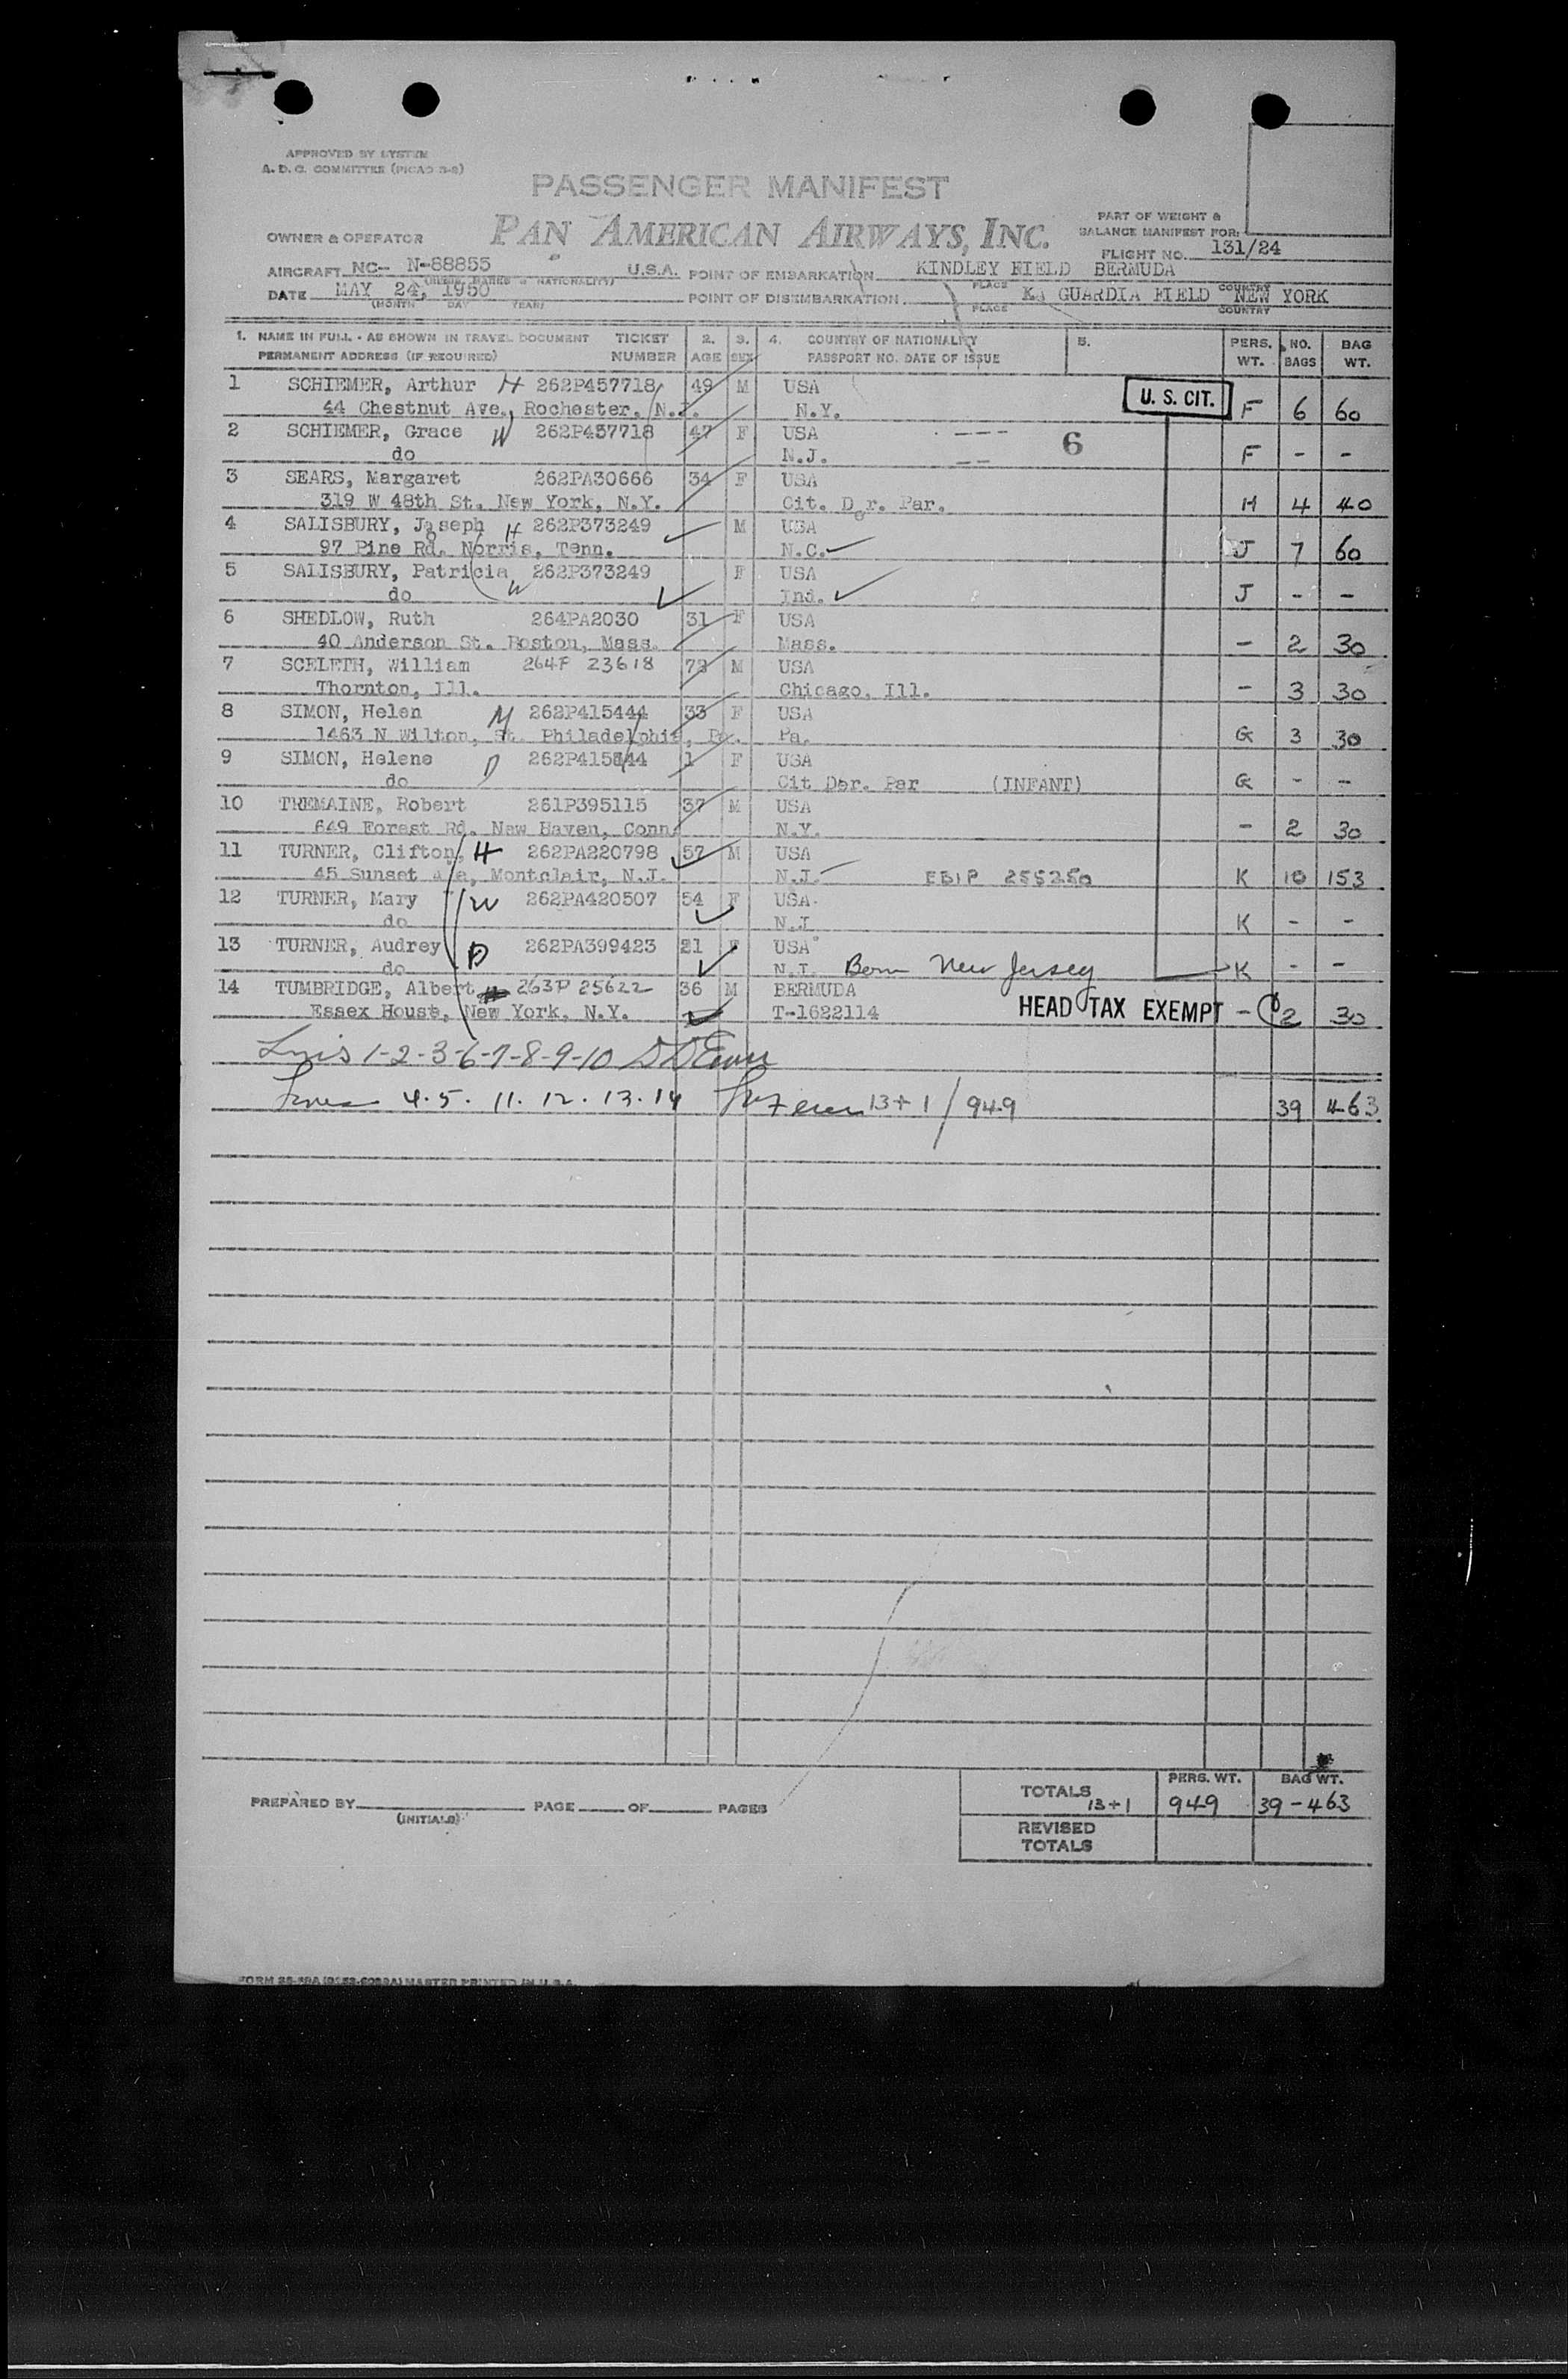 APPROVED BY SYSTEM
A. D. C. COMMITTEE (PICAO
PASSENGER MANIFEST
PAN AMERICAN AIRWAYS, INC.
PART OF WEIGHT &
BALANCE MANIFEST FOR:
OWNER & OPERATOR
FLIGHT NO. 131/24
AIRCRAFT NC-- N-88855 U.S.A. POINT OF EMBARKATION KINDLEY FIELD BERMUDA
DATE MAY 24, 1950 POINT OF DISEMBARKATION GUARDIA FIELD NEW YORK
(MONTH DAY YEAR) PLACE COUNTRY
1. NAME IN FULL - AS SHOWN IN TRAVEL DOCUMENT TICKET 2. 3. 4. COUNTRY OF NATIONALITY 5. PERS. NO. BAG
PERMANENT ADDRESS (IF REQUIRED) NUMBER AGE SEX PASSPORT NO. DATE OF ISSUE WT. BAGS WT.
1 SCHIEMER, Arthur H 262P457718 49 M USA U. S. CIT.
44 Chestnut Ave., Rochester, N.Y. N.Y. F 6 60
2 SCHIEMER, Grace W 262P457718 47 F USA 6
do N.J. F - -
3 SEARS, Margaret 262PA30666 34 F USA
319 W 48th St. New York, N.Y. Cit. Der. Par. H 4 40
4 SALISBURY, Joseph H 262P373249 M USA
97 Pine Rd. Norris, Tenn. N.C. J 7 60
5 SALISBURY, Patricia W 262P373249 F USA
do Ind. J - -
6 SHEDLOW, Ruth 264PA2030 31 F USA
40 Anderson St. Boston, Mass. Mass. - 2 30
7 SCELETH, William 264P 23618 73 M USA
Thornton, Ill. Chicago, Ill. - 3 30
8 SIMON, Helen M 262P415444 33 F USA
1463 N Wilton, St. Philadelphia, Pa. Pa. G 3 30
9 SIMON, Helene D 262P415444 1 F USA
do Cit Der. Par (INFANT) G - -
10 TREMAINE, Robert 261P395115 37 M USA
649 Forest Rd. New Haven, Conn. N.Y. - 2 30
11 TURNER, Clifton, H 262PA220798 57 M USA
45 Sunset Montclair, N.J. N.J. EBIP 255250 K 10 153
12 TURNER, Mary W 262PA420507 54 F USA
do N.J K - -
13 TURNER, Audrey D 262PA399423 21 F USA
do N.J. Born New Jersey K - -
14 TUMBRIDGE, Albert 263P 25622 36 M BERMUDA
Essex House, New York, N.Y. T-1622114 HEAD TAX EXEMPT - 2 30
1-2-3-6-7-8-9-10
4. 5. 11. 12. 13. 14 13+1 / 949 39 463
PREPARED BY PAGE OF PAGES
(INITIALS)
TOTALS 13+1 PERS. WT. 949 BAG WT. 39-463
REVISED
TOTALS
MASTER PRINTED IN U.S.A.